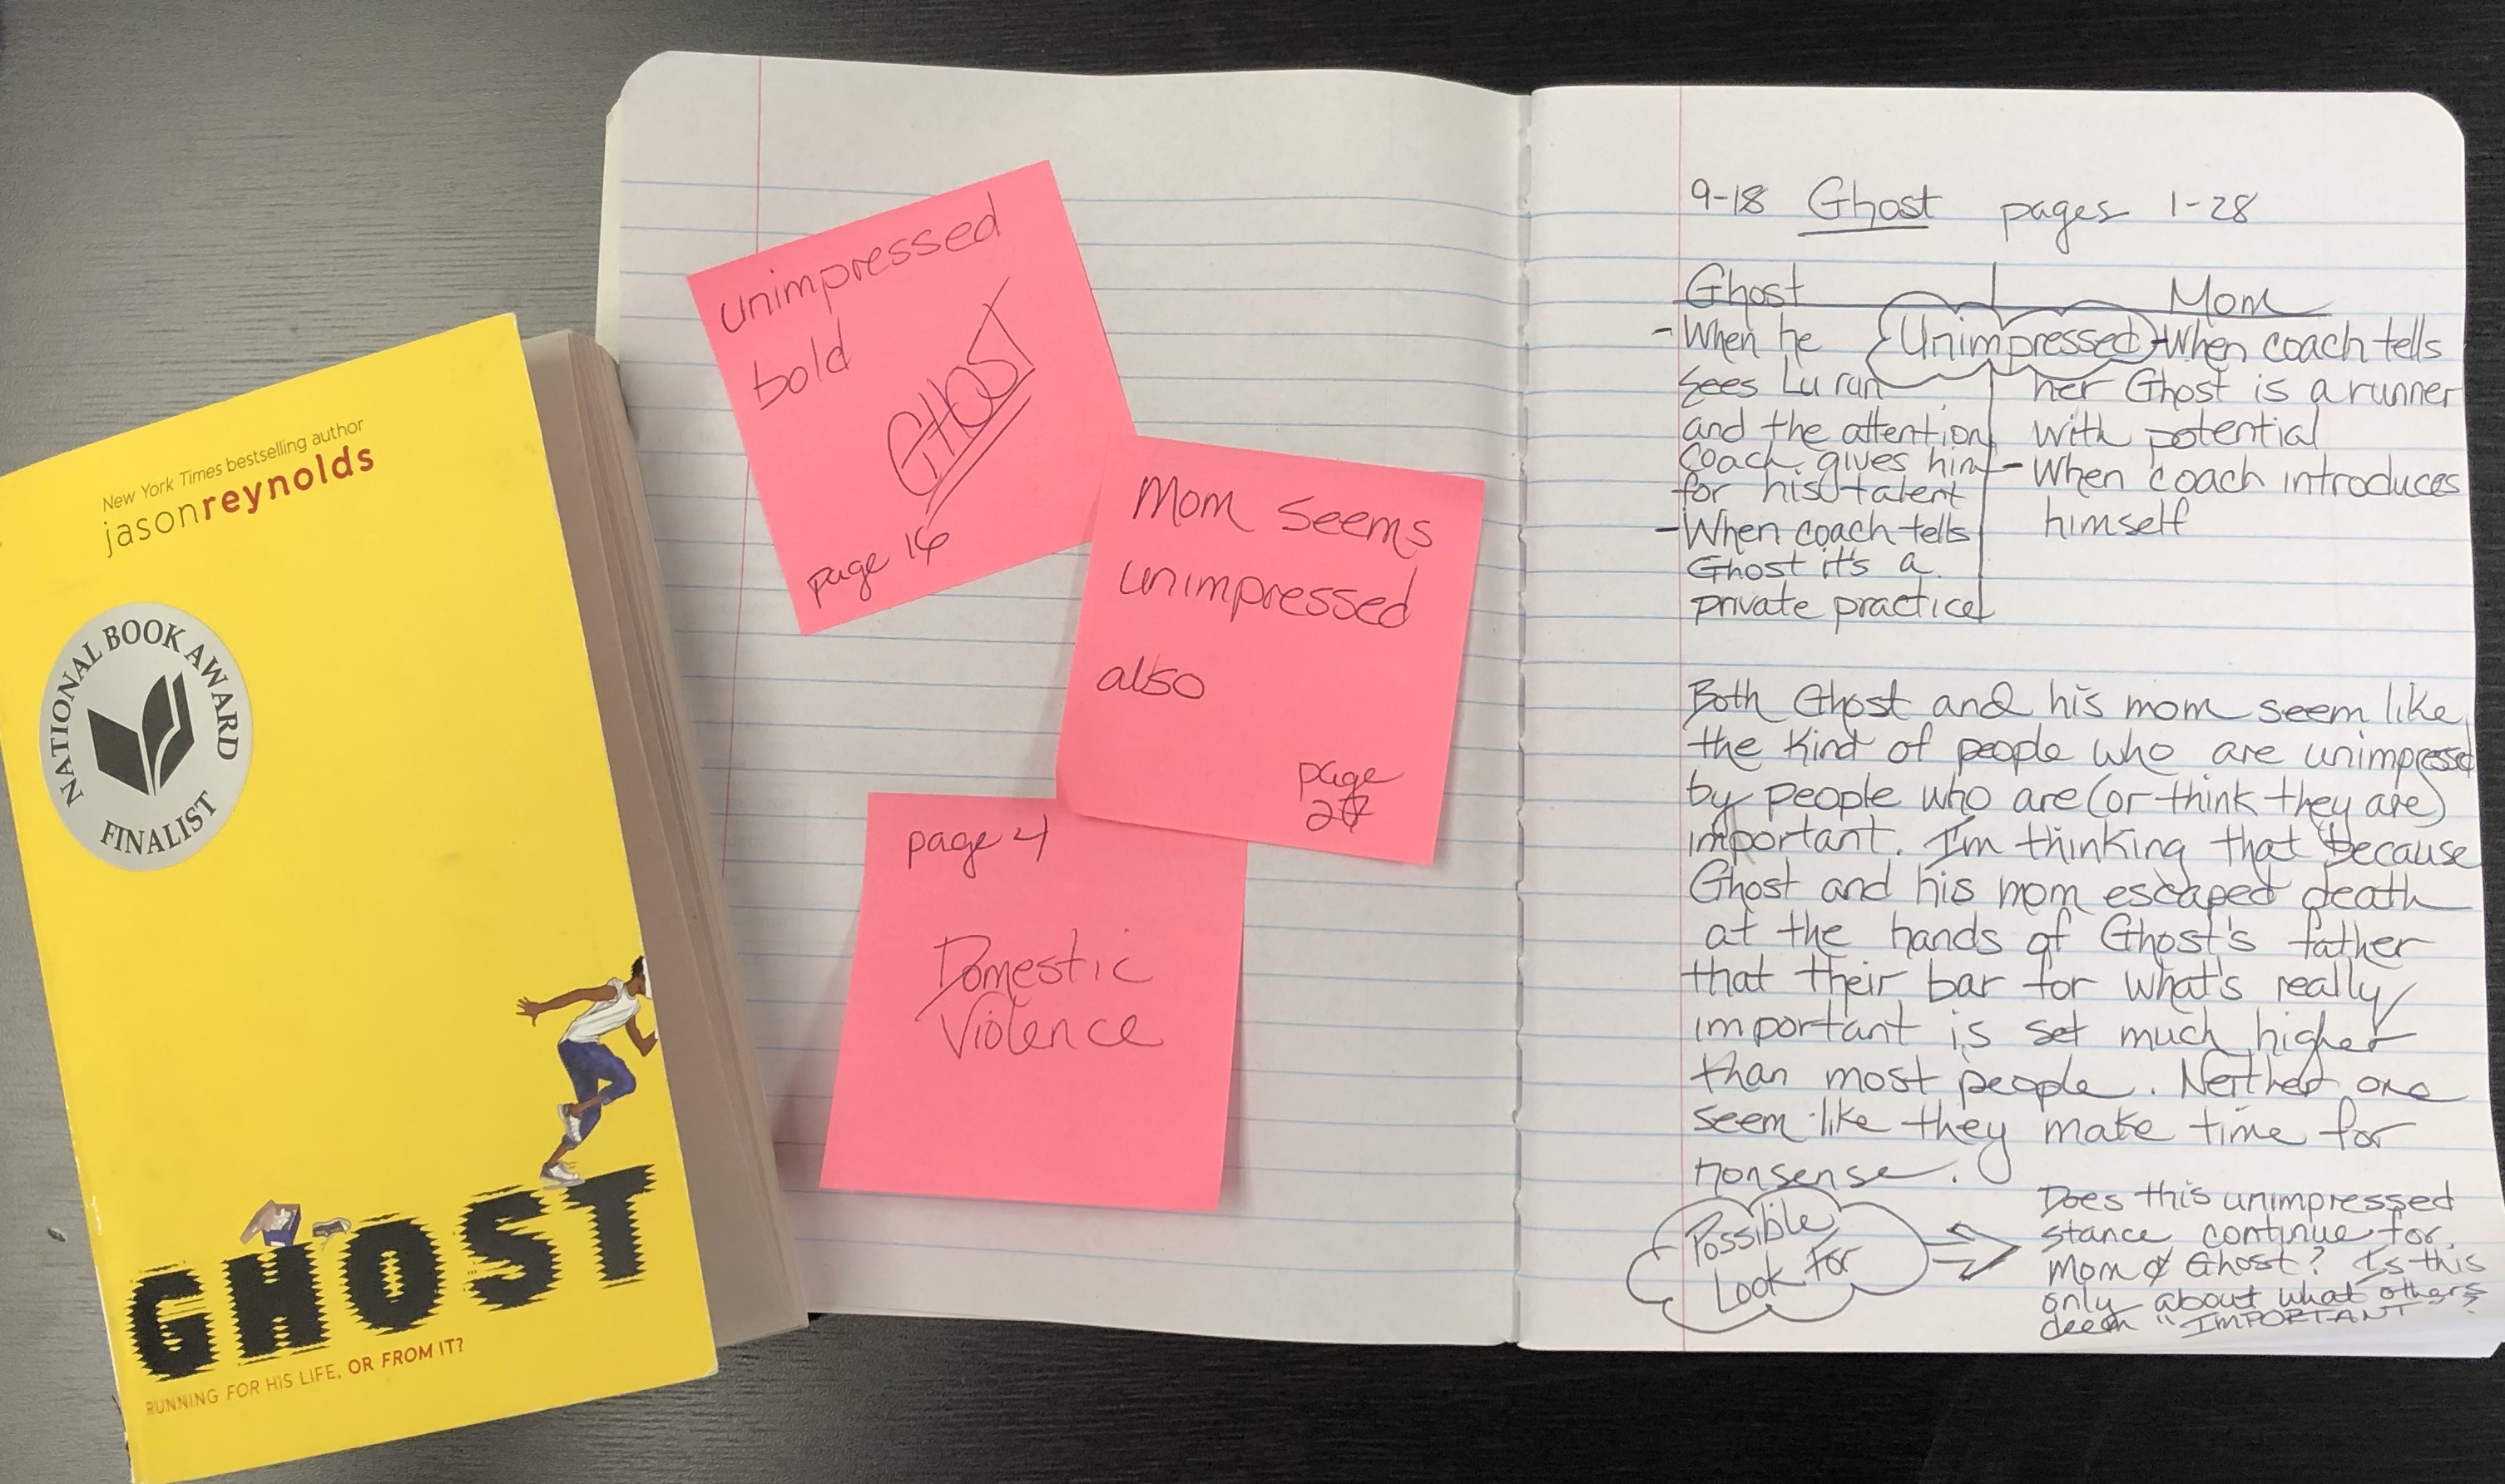 New York Times bestselling author
jasonreynolds
NATIONAL BOOK AWARD
FINALIST
GHOST
RUNNING FOR HIS LIFE, OR FROM IT?
unimpressed
bold
GHOST
page 16
Mom seems
unimpressed
also
page
27
page 4
Domestic
Violence
9-18 Ghost pages 1-28
Ghost
- When he
sees Lu run
and the attention
coach gives him
for his talent
- When coach tells
Ghost it's a
private practice
Unimpressed
Mom
- When coach tells
her Ghost is a runner
with potential
- When coach introduces
himself
Both Ghost and his mom seem like
the kind of people who are unimpressed
by people who are (or think they are)
important. I'm thinking that because
Ghost and his mom escaped death
at the hands of Ghost's father
that their bar for what's really
important is set much higher
than most people. Neither one
seem like they make time for
nonsense.
Possible
Look For
Does this unimpressed
stance continue for
Mom & Ghost? Is this
only about what others
deem "IMPORTANT"?